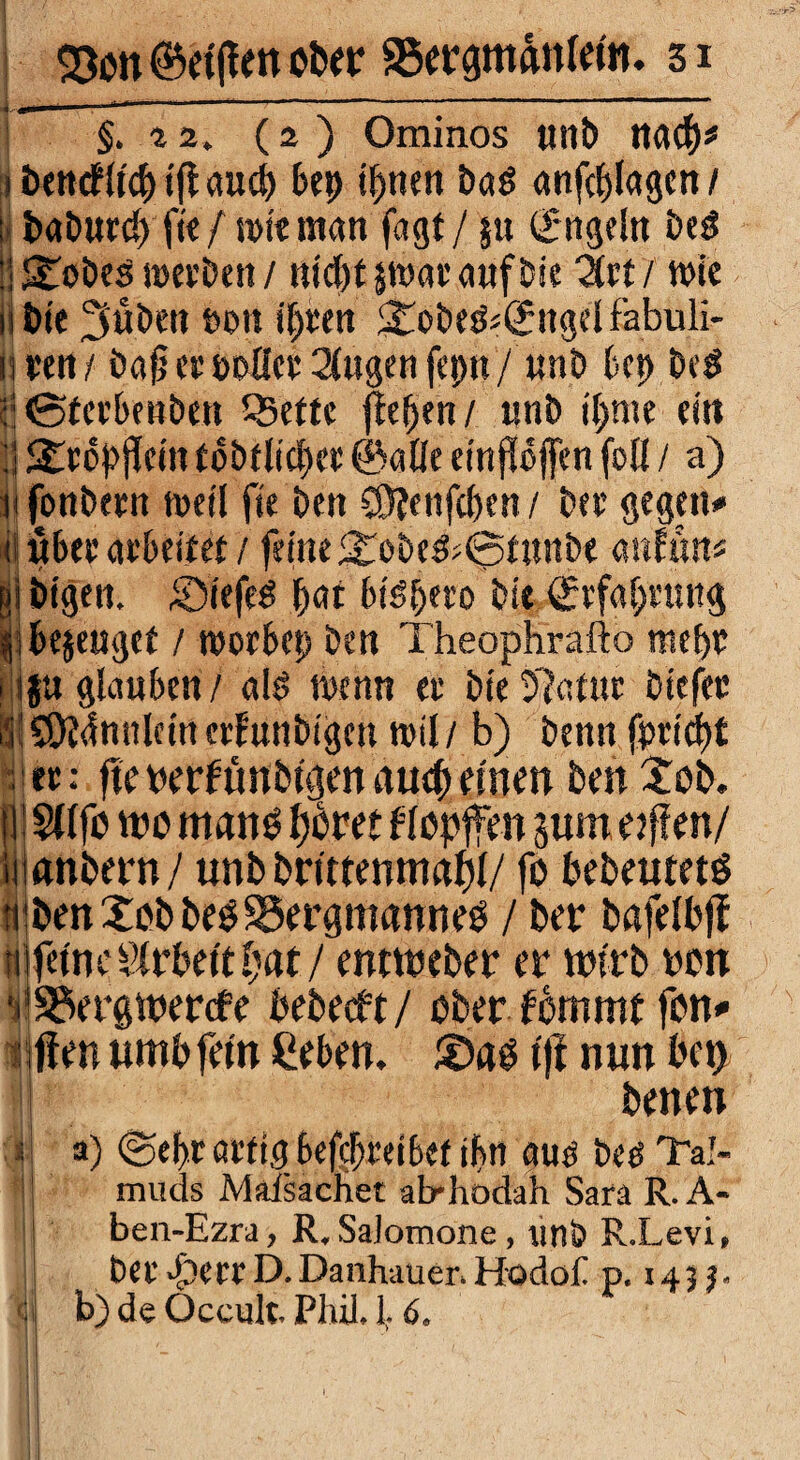 Von Geisten oder Bergmänlein. 31
§. 22. (2) Ominos und nach⸗
dencklich ist auch bey ihnen das anschlagen /
dadurch sie / wie man sagt / zu Engeln des
Todes werden / nicht zwar auf die Art / wie
die Jüden von ihren Todes⸗Engel fabuli-
ren / daß er voller Augen seyn / und bey des
Sterbenden Bette stehen / und ihme ein
Tröpflein tödtlicher Galle einflössen soll / a)
sondern weil sie den Menschen / der gegen⸗
über arbeitet / seine Todes⸗Stunde ankün⸗
digen. Dieses hat bishero die Erfahrung
bezeuget / worbey den Theophrasto mehr
zu glauben / als wenn er die Natur dieser
Männlein erkundigen wil / b) denn spricht
er: sie verkündigen auch einen den Tod.
Also wo mans höret klopffen zum ersten/
andern / und drittenmahl/ so bedeutets
den Tod des Bergmannes / der daselbst
seine Arbeit hat / entweder er wird von
Bergwercke bedeckt / oder kömmt son⸗
sten umb sein Leben. Das ist nun bey
denen
a) Sehr artig beschreibet ihn aus des Tal-
muds Massachet abhodah Sara R. A-
ben-Ezra, R. Salomone, und R. Levi,
der Herr D. Danhauer. Hodos. p. 1433.
b) de Occult. Phil. l. 6.